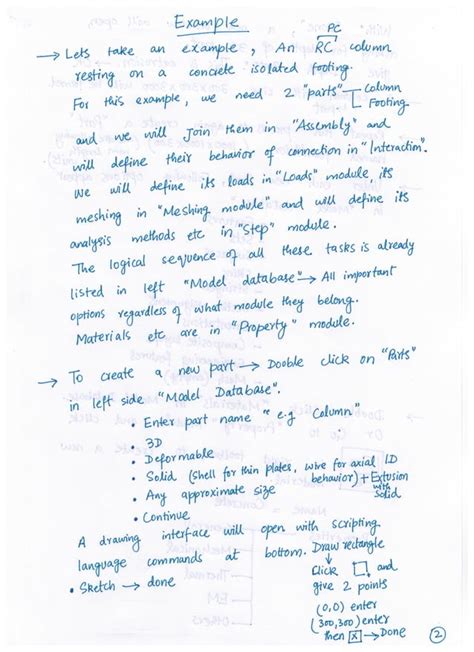 Example
→ Lets take an example, An RC column
PC
resting on a concrete isolated footing.
For this example, we need 2 "parts" Column
Footing.
and we will join them in "Assembly" and
will define their behavior of connection in "Interaction".
We will define its loads in "Loads" module, its
meshing in "Meshing module" and will define its
analysis methods etc in "Step" module.
The logical sequence of all these tasks is already
listed in left "Model database" → All important
options regardless of what module they belong.
Materials etc are in "Property" module.
→ To create a new part → Dooble click on "Parts"
in left side "Model Database".
• Enter part name "e.g Column"
• 3D
• Deformable
• Solid (shell for thin plates, wire for axial 1D
behavior) + Extusion
with
solid
• Any approximate size
• Continue
A drawing interface will open with scripting
language commands at bottom. Draw rectangle
• Sketch → done
Click □, and
give 2 points
(0,0) enter
(300,300) enter
then X → Done
2